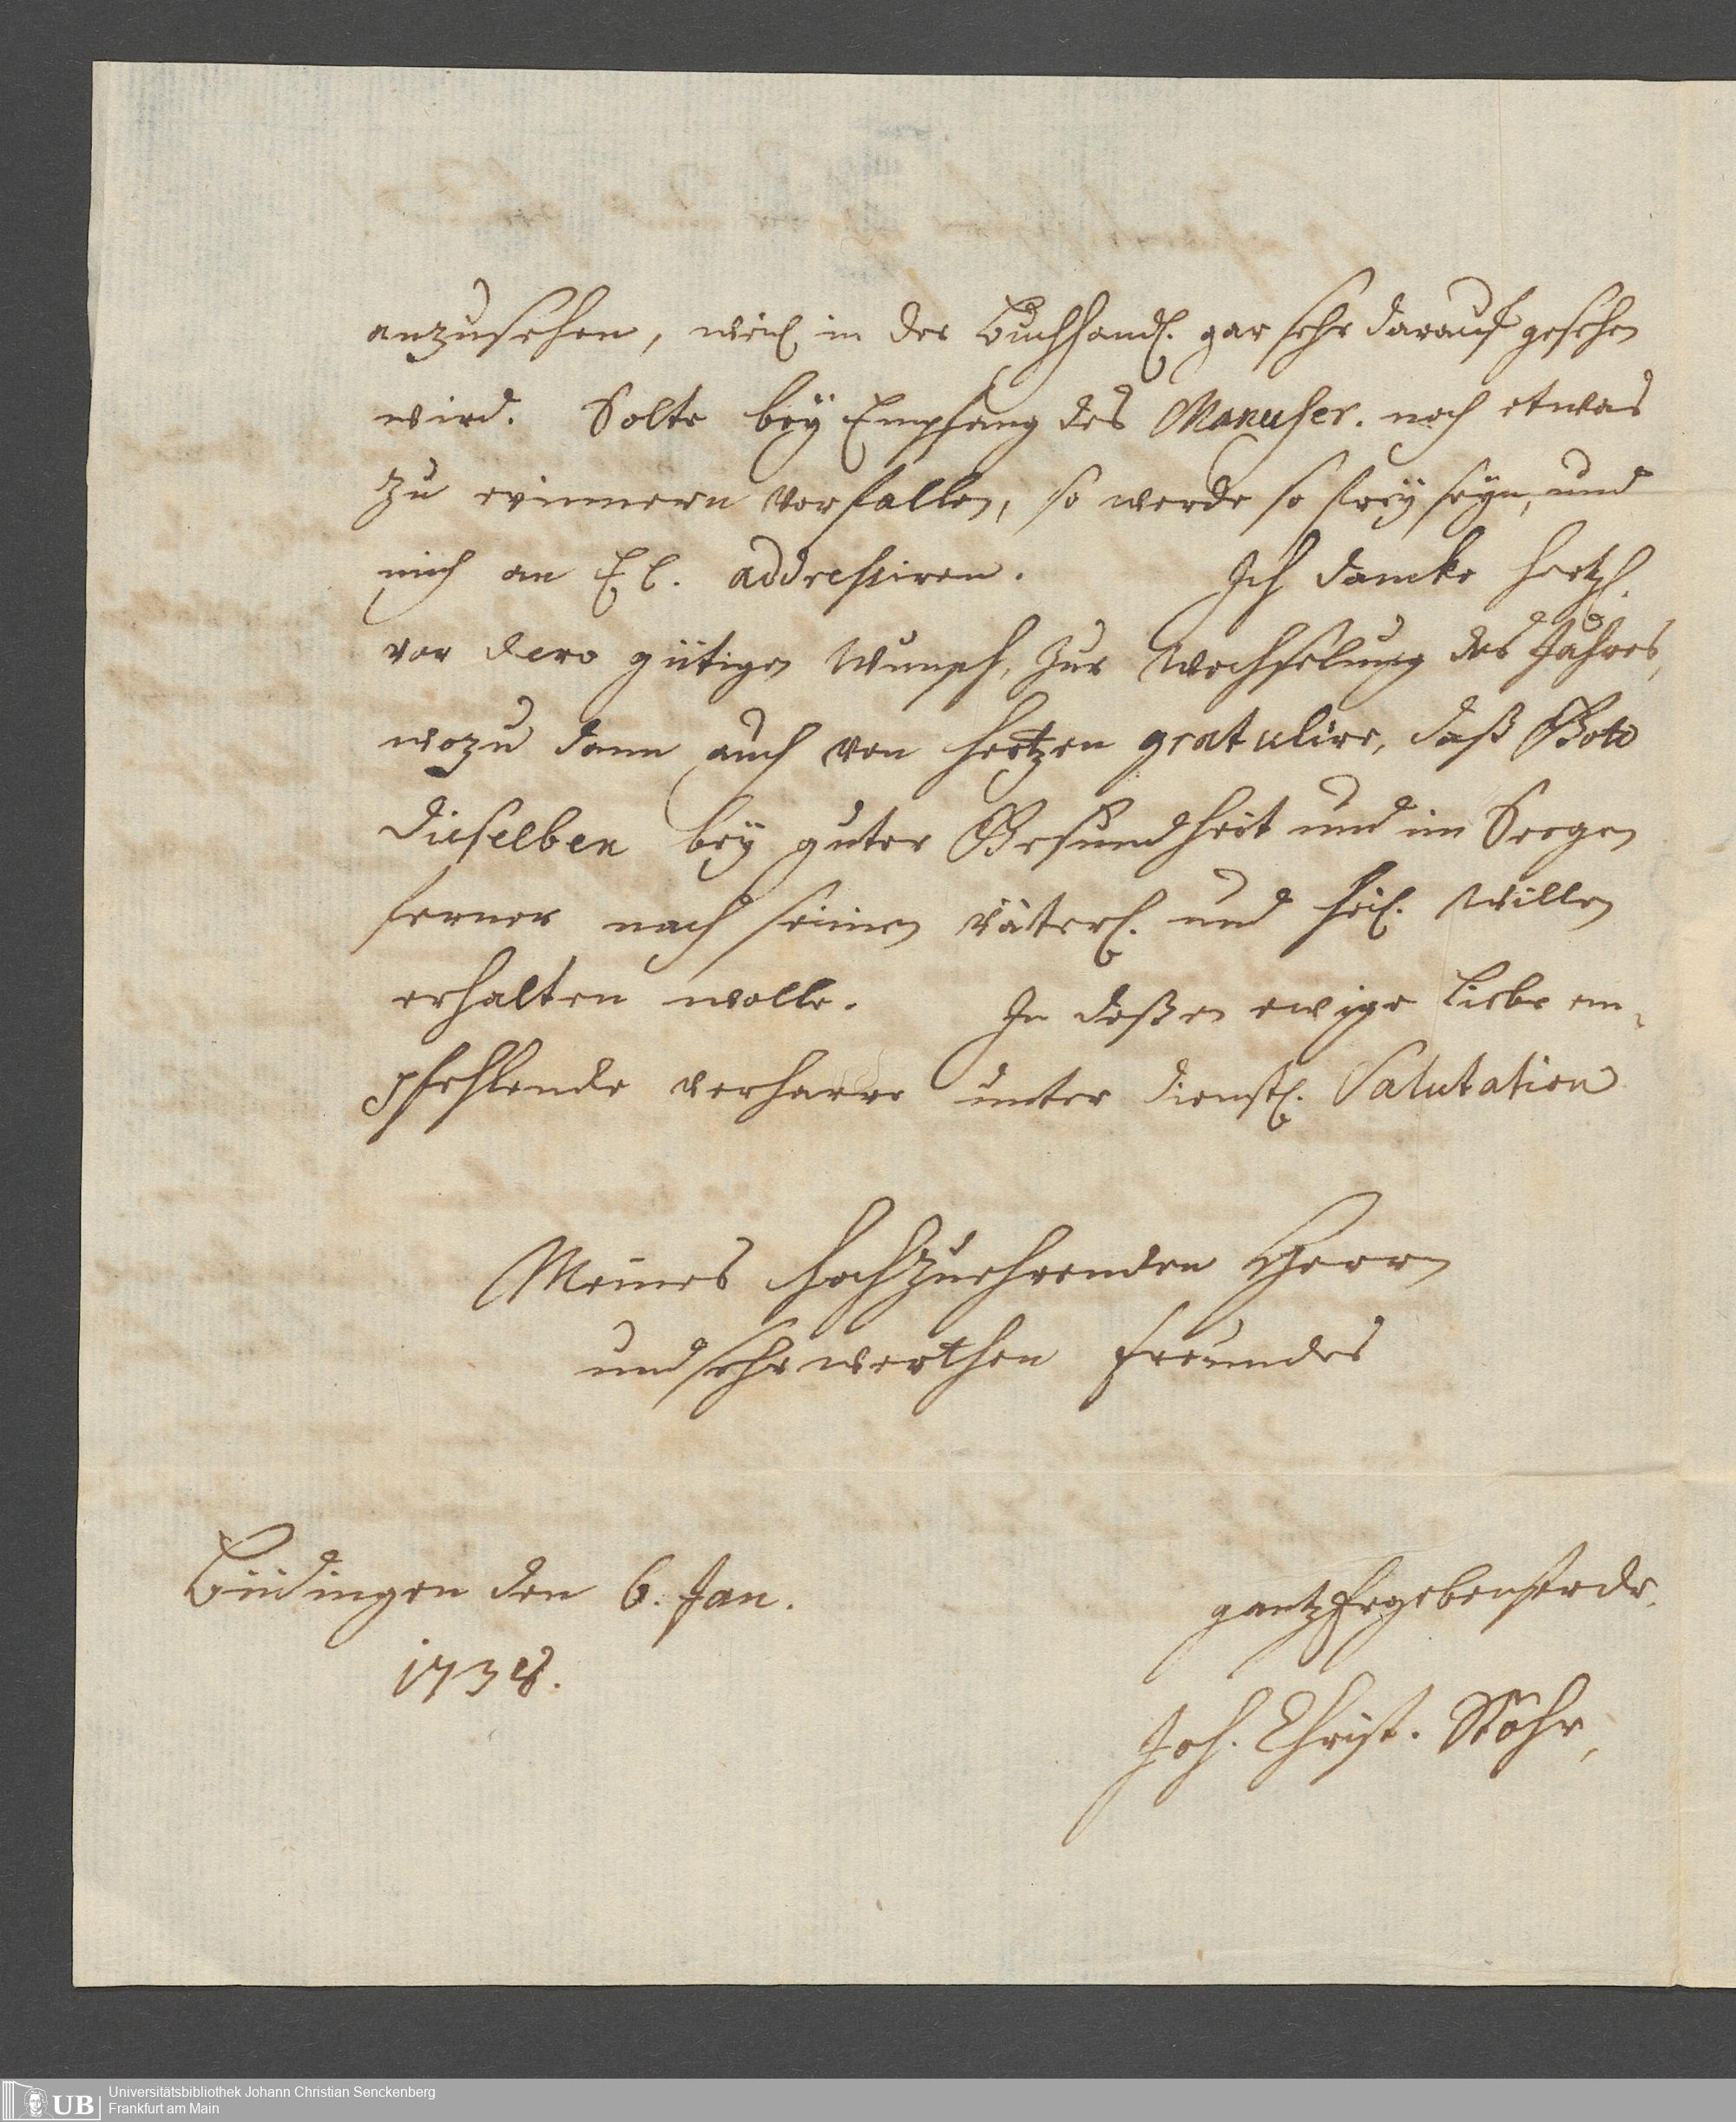 anzusehen, weil in der Buchhandl. gar sehr darauf gesehen
wird. Solte bey Empfang des Manuscr. noch etwas
zu erinnern vorfallen, so werde so frey seyn, und
mich an E. addressiren. Ich dancke hertzl.
vor dero gütigen Wunsch, zur Wechselung des Jahres,
wozu dann auch von Hertzen gratulire, daß Gott
dieselben bey guter Gesundheit und im Seegen
ferner nach seinen väterl. und heil. Willen
erhalten wolle. In deßen ewige Liebe em-
pfehlende verharre unter dienstl. Salutation
Meines Hochzuehrenden Herrn
und sehr werthen Freundes
Büdingen den 6. Jan.
1738.
gantz Ergebenster dr.
Joh. Christ. Stöhr,
UB Universitätsbibliothek Johann Christian Senckenberg
Frankfurt am Main